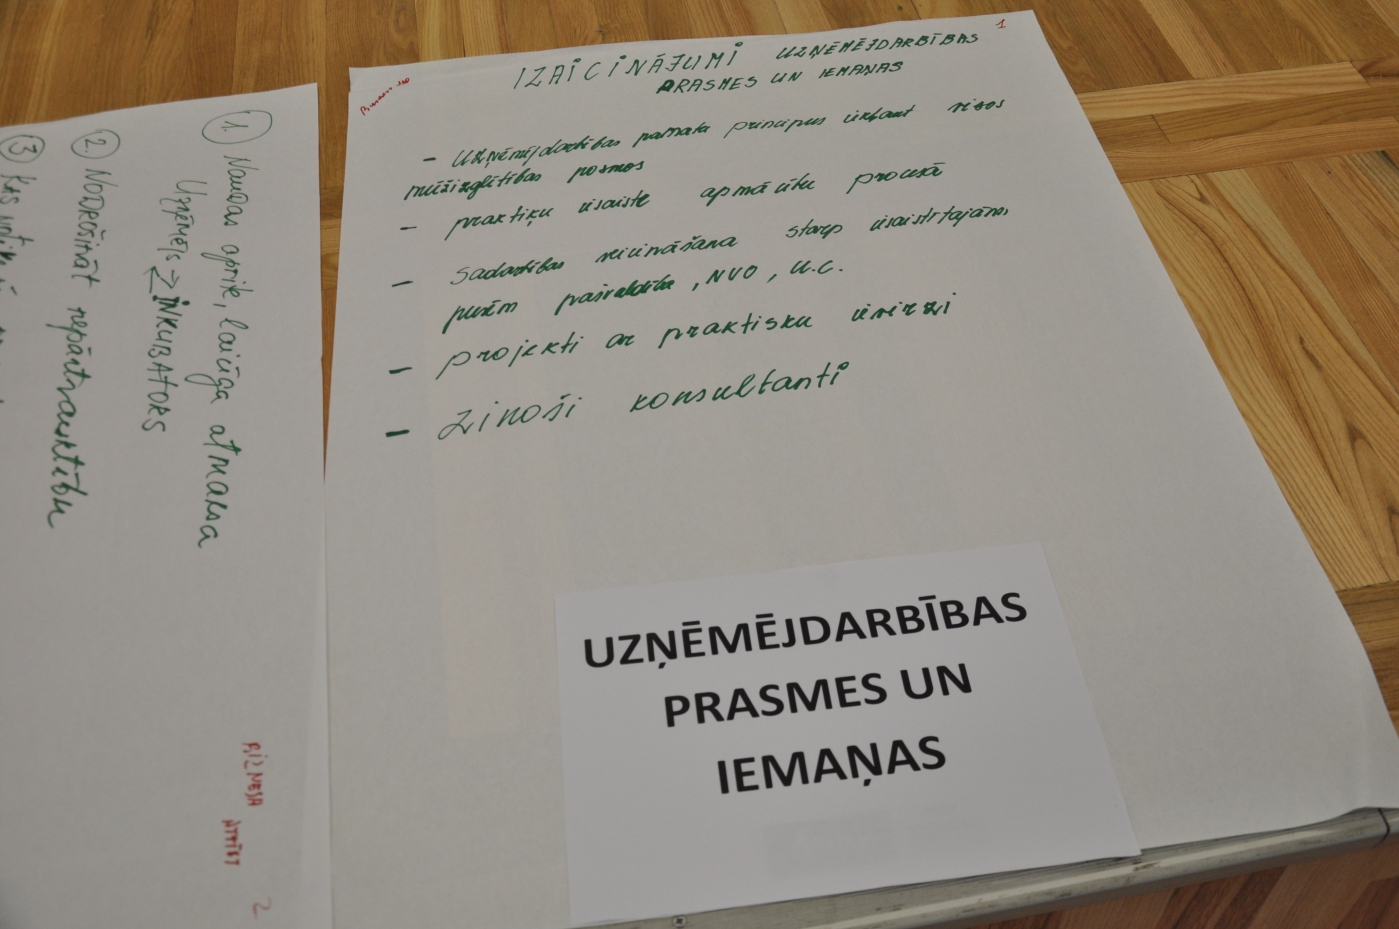 1
IZAICINĀJUMI UZŅĒMĒJDARBĪBAS
PRASMES UN IEMAŅAS
- Uzņēmējdarbības pamata principus iekļaut visos
mūžizglītības posmos
- praktiķu iesaiste apmācītu procesā
- sadarbības veicināšana starp iesaistītajām
pusēm pašvaldība, NVO, u.c.
- projekti ar praktisku ievirzi
- zinoši konsultanti
UZŅĒMĒJDARBĪBAS
PRASMES UN
IEMAŅAS
1. Naudas aprite, laicīga atmaksa
Uzņēmējs INKUBATORS
2. NODROŠINĀT nepārtrauktību
3
BIZNESA
2